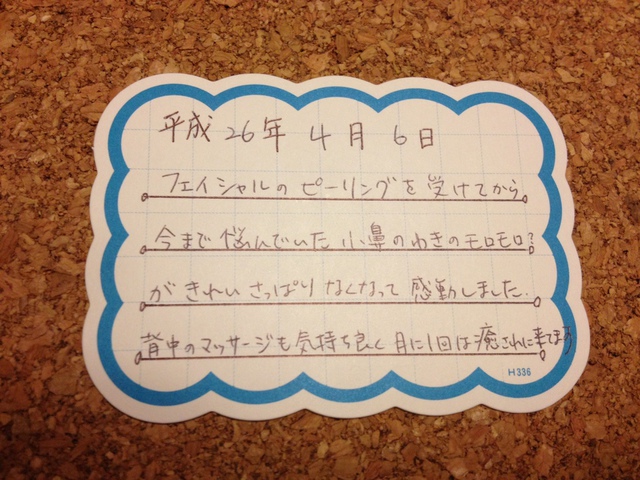 平成26年 4月 6日
フェイシャルのピーリングを受けてから
今まで悩んでいた小鼻のわきのモロモロ?
がきれいさっぱりなくなって感動しました.
背中のマッサージも気持ち良く月に1回は癒されに来てます
H336